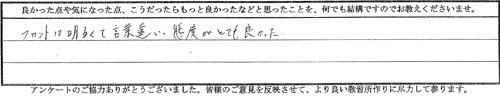 良かった点や気になった点、こうだったらもっと良かったなどと思ったことを、何でも結構ですのでお教えくださいませ。
フロントは明るくて言葉遣い、態度がとても良かった
アンケートのご協力ありがとうございました。皆様のご意見を反映させて、より良い教習所作りに尽力して参ります。